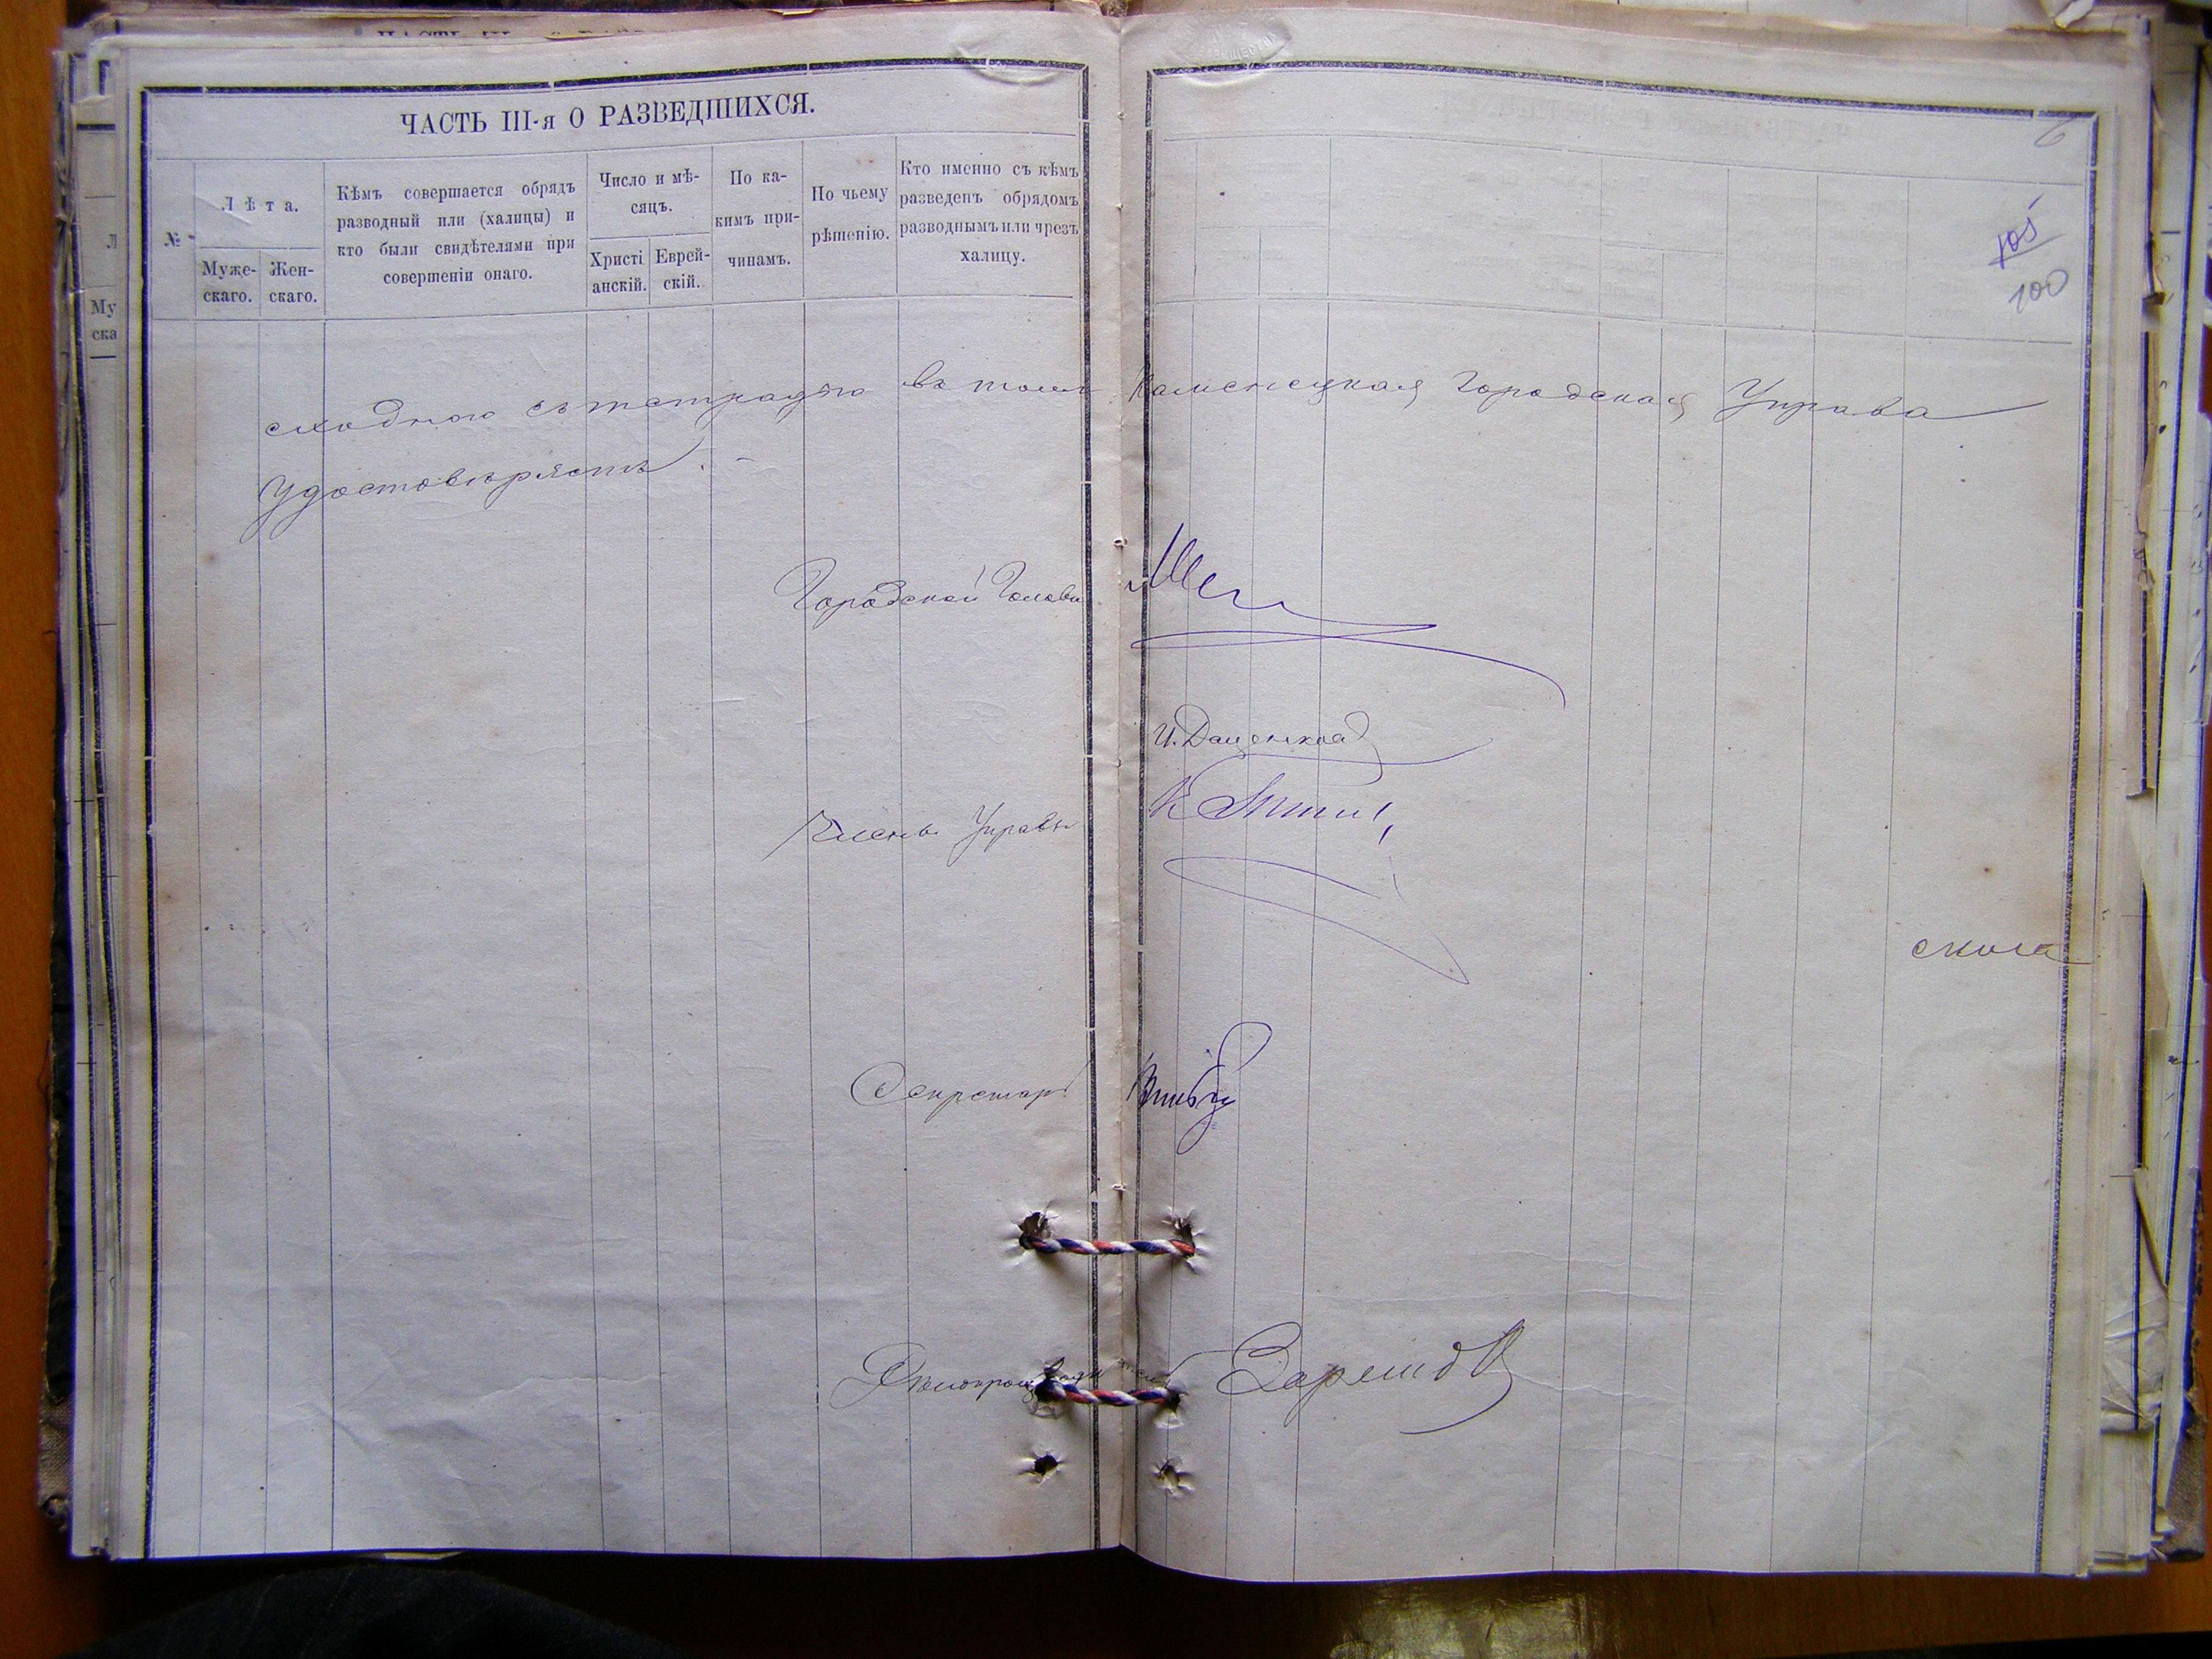 ЧАСТЬ III-я О РАЗВЕДШИХСЯ.
№
Лѣта.
Муже-
скаго.
Жен-
скаго.
Кѣмъ совершается обрядъ
разводный или (халицы) и
кто были свидѣтелями при
совершеніи онаго.
Число и мѣ-
сяцъ.
Христі
анскій.
Еврей-
скій.
По ка-
кимъ при-
чинамъ.
По чьему
рѣшенію.
Кто именно съ кѣмъ
разведенъ обрядомъ
разводнымъ или чрезъ
халицу.
6
105
100
сходною съ тетрадью въ томъ Каменецкая Городская Управа
Удостовѣряетъ. -
Городской Голова
И. Даценко
Члены Управы
Секретарь
Дѣлопроизводитель